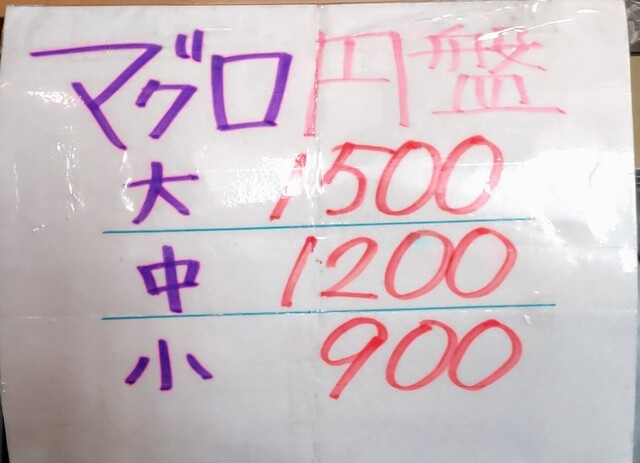 マグロ円盤
大 1500
中 1200
小 900